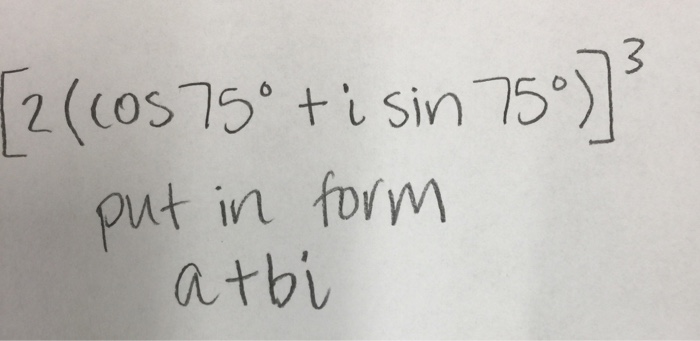 [2(cos 75° + i sin 75°)]³
put in form
a+bi